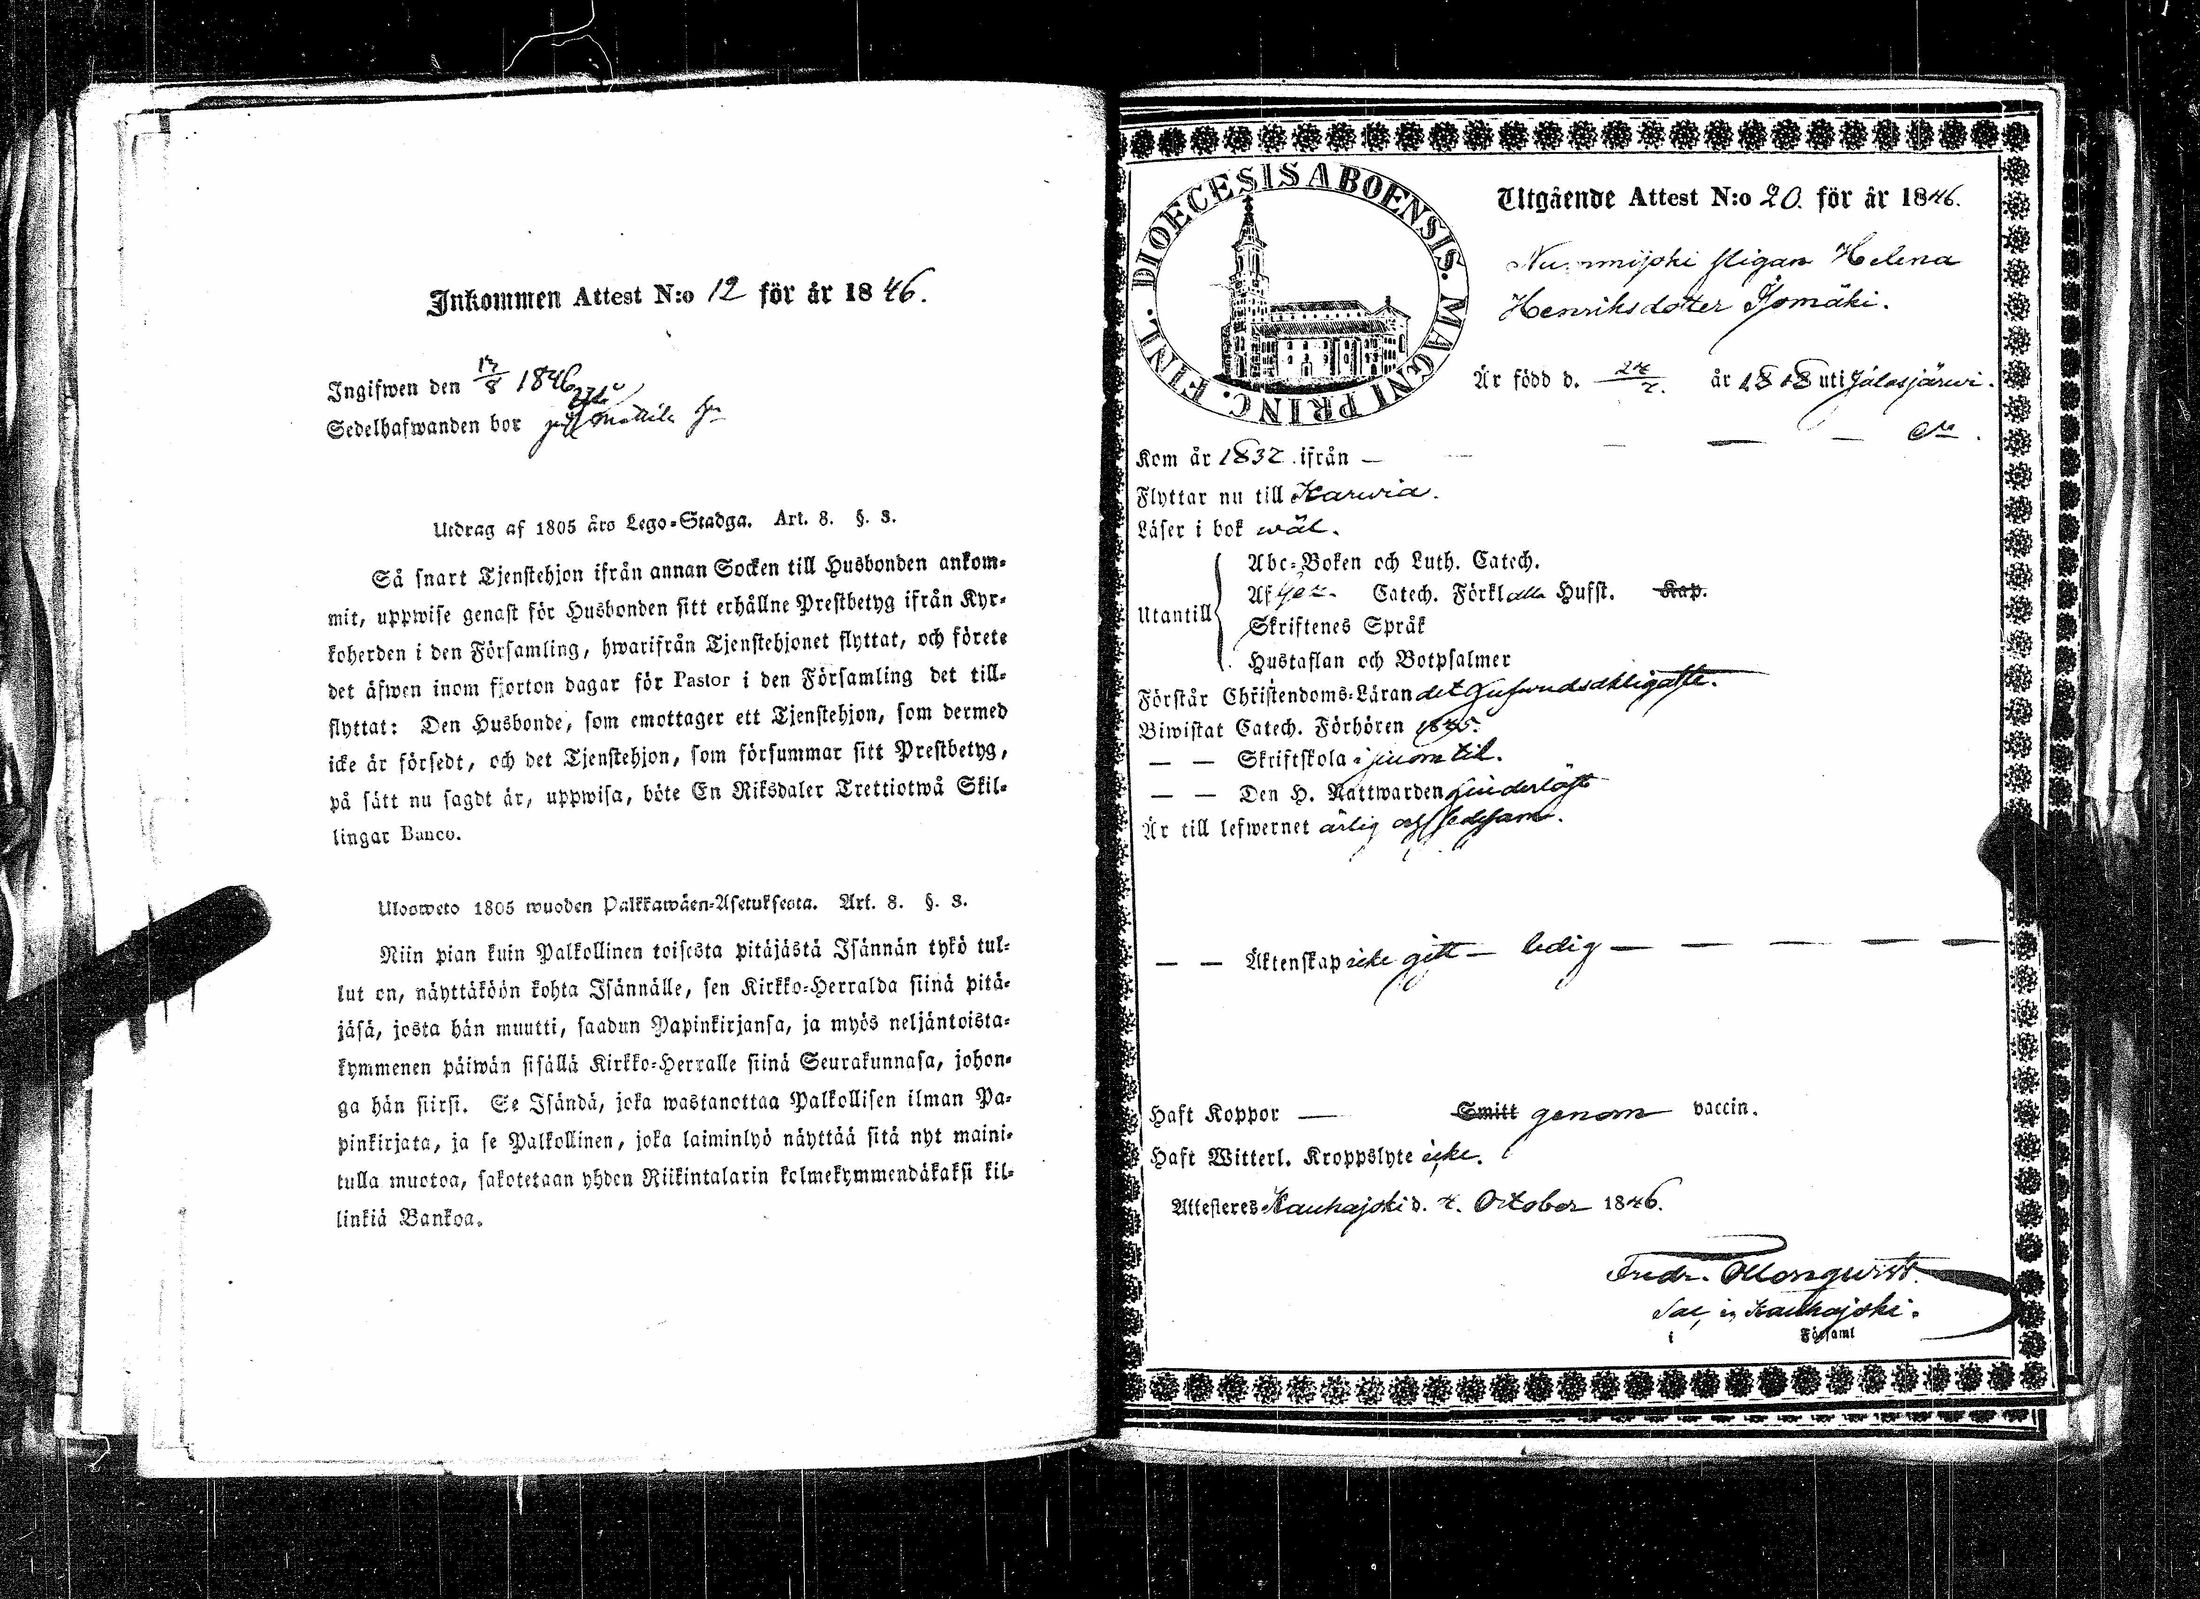 Inkommen Attest N:o 12 för år 1846.
Ingifwen den 17/8 1846
Sedelhafwanden bor
Utdrag af 1805 års Lego-Stadga. Art. 8. §. 3.
Så snart Tjenstehjon ifrån annan Socken till Husbonden ankom-
mit, uppwise genast för Husbonden sitt erhållne Prestbetyg ifrån Kyr-
koherden i den Församling, hwarifrån Tjenstehjonet flyttat, och förete
det äfwen inom fjorton dagar för Pastor i den Församling det till-
flyttat: Den Husbonde, som emottager ett Tjenstehjon, som dermed
icke är försedt, och det Tjenstehjon, som försummar sitt Prestbetyg,
på sätt nu sagdt är, uppwisa, böte En Riksdaler Trettiotwå Skil-
lingar Banco.
Ulosweto 1805 wuoden Palkkawäen-Asetuksesta. Art. 8. §. 3.
Niin pian kuin Palkollinen toisesta pitäjästä Isännän tykö tul-
lut on, näyttäköön kohta Isännälle, sen Kirkko-Herralda siinä pitä-
jäsä, josta hän muutti, saadun Papinkirjansa, ja myös neljäntoista-
kymmenen päiwän sisällä Kirkko-Herralle siinä Seurakunnasa, johon-
ga hän siirsi. Se Isändä, joka wastanottaa Palkollisen ilman Pa-
pinkirjata, ja se Palkollinen, joka laiminlyö näyttää sitä nyt maini-
tulla muotoa, sakotetaan yhden Riikintalarin kolmekymmendäkaksi kil-
linkiä Bankoa.
DIOECESIS ABOENSIS. MAGNI PRINC. FINL.
Utgående Attest N:o 20. för år 1846.
Nummijoki pigan Helena
Henriksdotter Isomäki.
Är född d. år 1808 uti Jalasjärwi.
Kom år 1832 ifrån —
Flyttar nu till Karwia.
Läser i bok wäl.
Utantill
Abc-Boken och Luth. Catech.
Af Catech. Förkl alla Hufst. Kap.
Skriftenes Språk
Hustaflan och Botpsalmer
Förstår Christendoms-Läran det hufwudsakligaste.
Biwistat Catech. Förhören 1845.
— — Skriftskola
— — Den H. Nattwarden
Är till lefwernet ärlig och sedesam.
— — Äktenskap icke gift — ledig —
Haft Koppor — Smitt genom vaccin.
Haft Witterl. Kroppslyte icke.
Attesteres Kauhajoki d. 4. October 1846.
Fredr.
Sac. in Kauhajoki.
i Församl